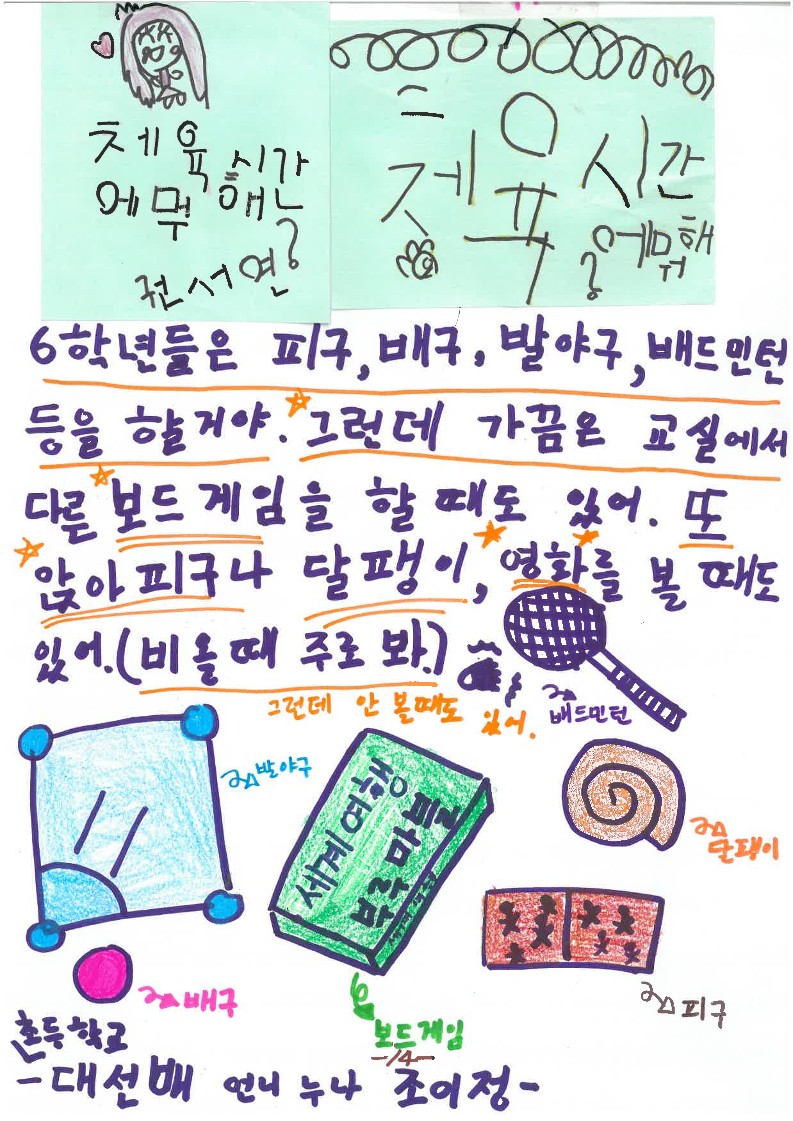 체육시간
에 뭐 해?
권서연
체육시간
에 뭐해?
6학년들은 피구, 배구, 발야구, 배드민턴
등을 할거야. 그런데 가끔은 교실에서
다른 보드게임을 할 때도 있어. 또
앉아피구나 달팽이, 영화를 볼 때도
있어. (비올때 주로 봐.)
그런데 안 볼때도 있어.
배드민턴
발야구
세계여행
부루마불
달팽이
배구
보드게임
피구
-14-
초등학교
-대선배 언니 누나 조이정-